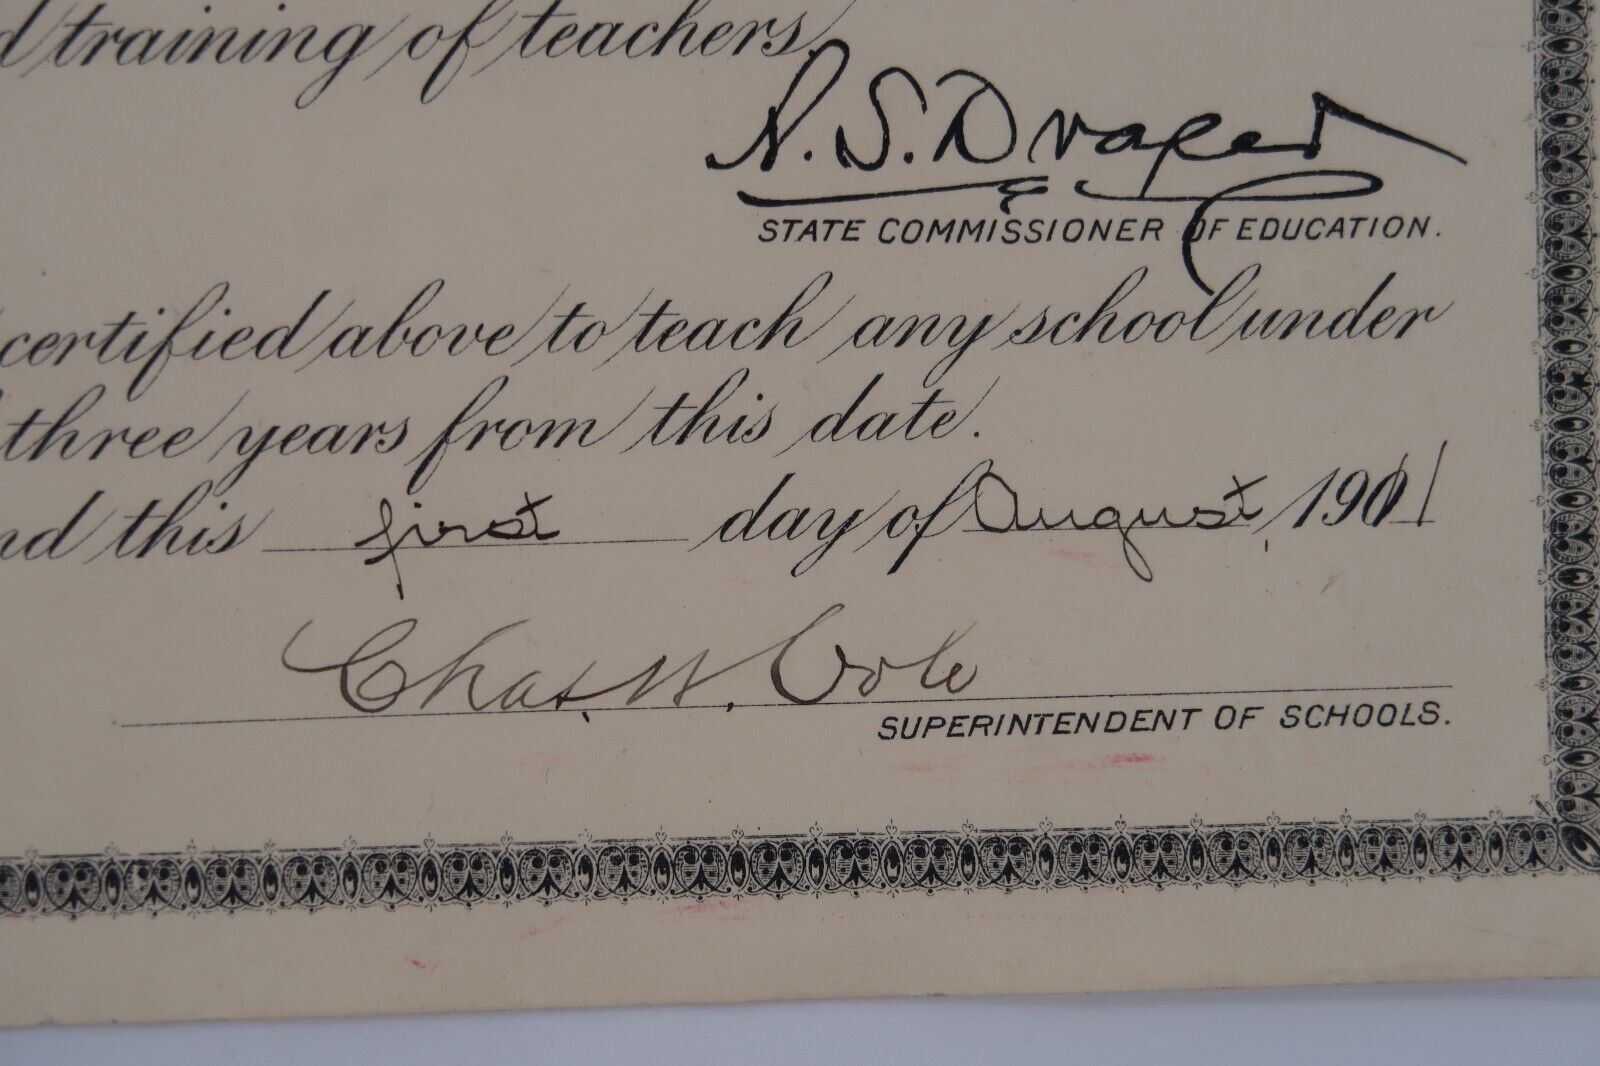 training of teachers.
A. S. Draper
STATE COMMISSIONER OF EDUCATION.
certified above to teach any school under
three years from this date.
this first day of August, 1911
Chas. W. Cole
SUPERINTENDENT OF SCHOOLS.